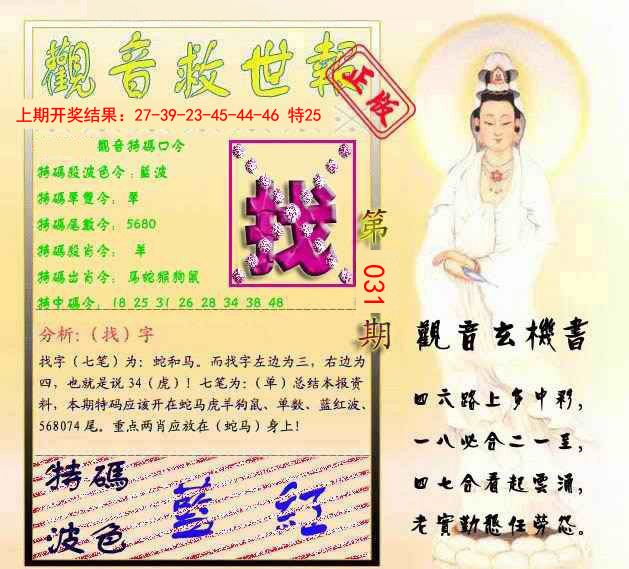 觀音救世報
正版
上期开奖结果：27-39-23-45-44-46 特25
觀音特碼口令
特碼段波色令：藍波
特碼單雙令： 單
特碼尾數令： 5680
特碼段肖令： 單
特碼出肖令： 馬蛇猴狗鼠
特中碼令： 18 25 31 26 28 34 38 48
找
第 031 期
分析：（找）字
找字（七笔）为：蛇和马。而找字左边为三，右边为
四，也就是说 34（虎）！七笔为：（单）总结本报资
料，本期特码应该开在蛇马虎羊狗鼠、单数、蓝红波、
568074 尾。重点两肖应放在（蛇马）身上！
特碼
波色
藍 紅
觀音玄機書
四六路上多中彩，
一八必合二一至，
四七合看起雲涌，
老實勤懇任勞怨。